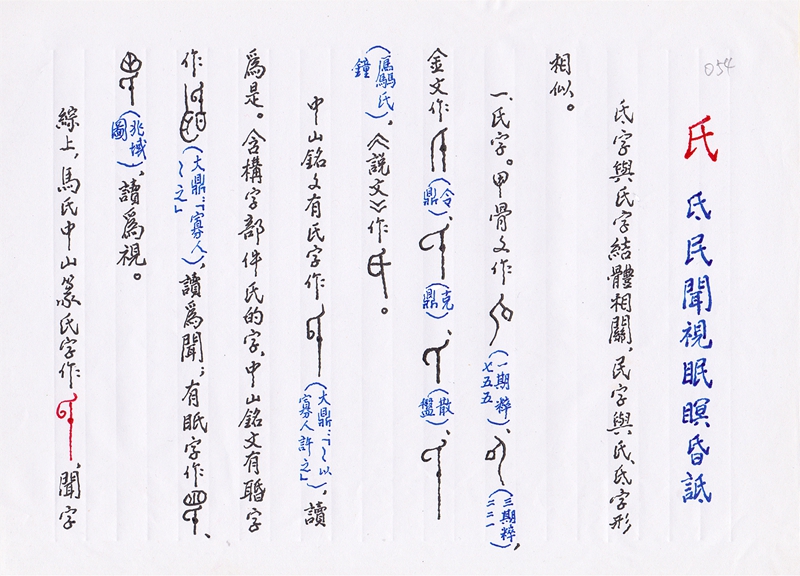 054
氏 氐民聞視眠瞑昏詆
氐字與氏字結體相關，民字與氏、氐字形
相似。
一、氏字。甲骨文作（一期粹七五五）、（三期粹二二一），
金文作（令鼎）、（克鼎）、（散盤）、
（𠫑羌氏鐘），《說文》作。
中山銘文有氏字作（大鼎：「〻以寡人許之」），讀
爲是。含構字部件氏的字，中山銘文有䎽字
作（大鼎：「寡人〻之」），讀爲聞；有眂字作、
（兆域圖），讀爲視。
綜上，馬氏中山篆氏字作，聞字